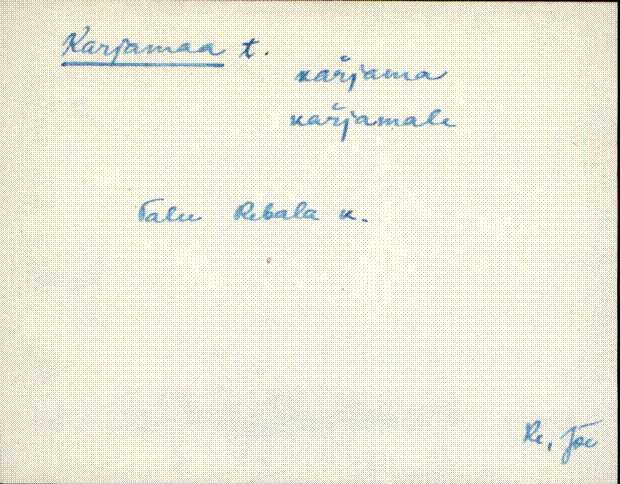 Karjamaa t.
kar̆jama
kar̆jamale
Talu Rebala k.
Re, Jõe